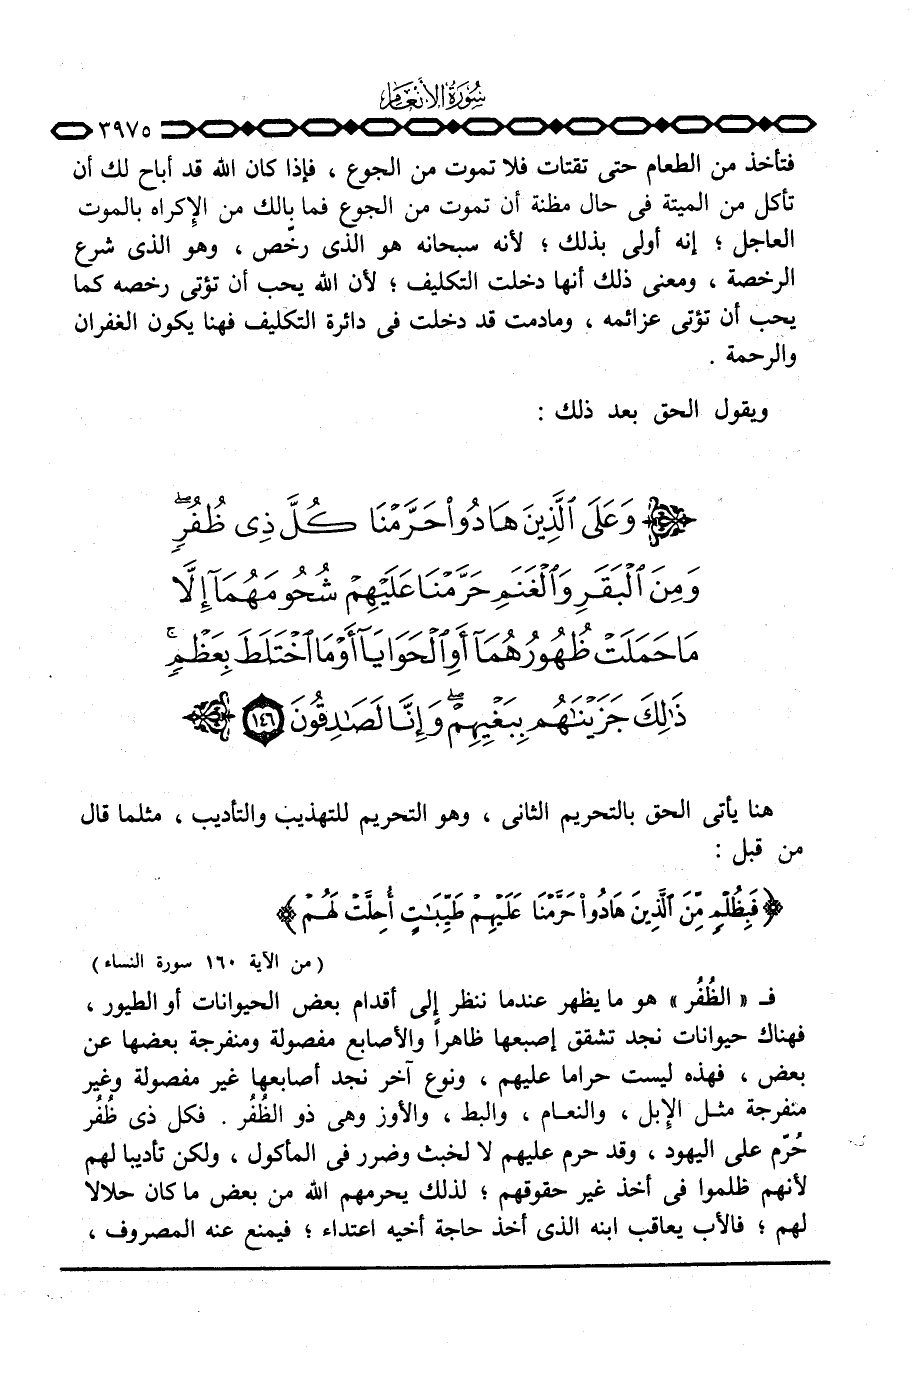 سُورَةُ الأَنعَام
٣٩٧٥
فتأخذ من الطعام حتى تقتات فلا تموت من الجوع ، فإذا كان الله قد أباح لك أن
تأكل من الميتة فى حال مظنة أن تموت من الجوع فما بالك من الإكراه بالموت
العاجل ؛ إنه أولى بذلك ؛ لأنه سبحانه هو الذى رخّص ، وهو الذى شرع
الرخصة ، ومعنى ذلك أنها دخلت التكليف ؛ لأن الله يحب أن تؤتى رخصه كما
يحب أن تؤتى عزائمه ، ومادمت قد دخلت فى دائرة التكليف فهنا يكون الغفران
والرحمة .
ويقول الحق بعد ذلك :
﴿ وَعَلَى ٱلَّذِينَ هَادُوا۟ حَرَّمْنَا كُلَّ ذِى ظُفُرٍۖ
وَمِنَ ٱلْبَقَرِ وَٱلْغَنَمِ حَرَّمْنَا عَلَيْهِمْ شُحُومَهُمَآ إِلَّا
مَا حَمَلَتْ ظُهُورُهُمَآ أَوِ ٱلْحَوَايَآ أَوْ مَا ٱخْتَلَطَ بِعَظْمٍۚ
ذَٰلِكَ جَزَيْنَٰهُم بِبَغْيِهِمْۖ وَإِنَّا لَصَٰدِقُونَ ١٤٦ ﴾
هنا يأتى الحق بالتحريم الثانى ، وهو التحريم للتهذيب والتأديب ، مثلما قال
من قبل :
﴿ فَبِظُلْمٍ مِّنَ ٱلَّذِينَ هَادُوا۟ حَرَّمْنَا عَلَيْهِمْ طَيِّبَٰتٍ أُحِلَّتْ لَهُمْ ﴾
( من الآية ١٦٠ سورة النساء )
فـ « الظُفُر » هو ما يظهر عندما ننظر إلى أقدام بعض الحيوانات أو الطيور ،
فهناك حيوانات نجد تشقق إصبعها ظاهراً والأصابع مفصولة ومنفرجة بعضها عن
بعض ، فهذه ليست حراما عليهم ، ونوع آخر نجد أصابعها غير مفصولة وغير
منفرجة مثل الإبل ، والنعام ، والبط ، والأوز وهى ذو الظُفُر . فكل ذى ظُفُر
حُرّم على اليهود ، وقد حرم عليهم لا لخبث وضرر فى المأكول ، ولكن تأديبا لهم
لأنهم ظلموا فى أخذ غير حقوقهم ؛ لذلك يحرمهم الله من بعض ما كان حلالا
لهم ؛ فالأب يعاقب ابنه الذى أخذ حاجة أخيه اعتداء ؛ فيمنع عنه المصروف ،